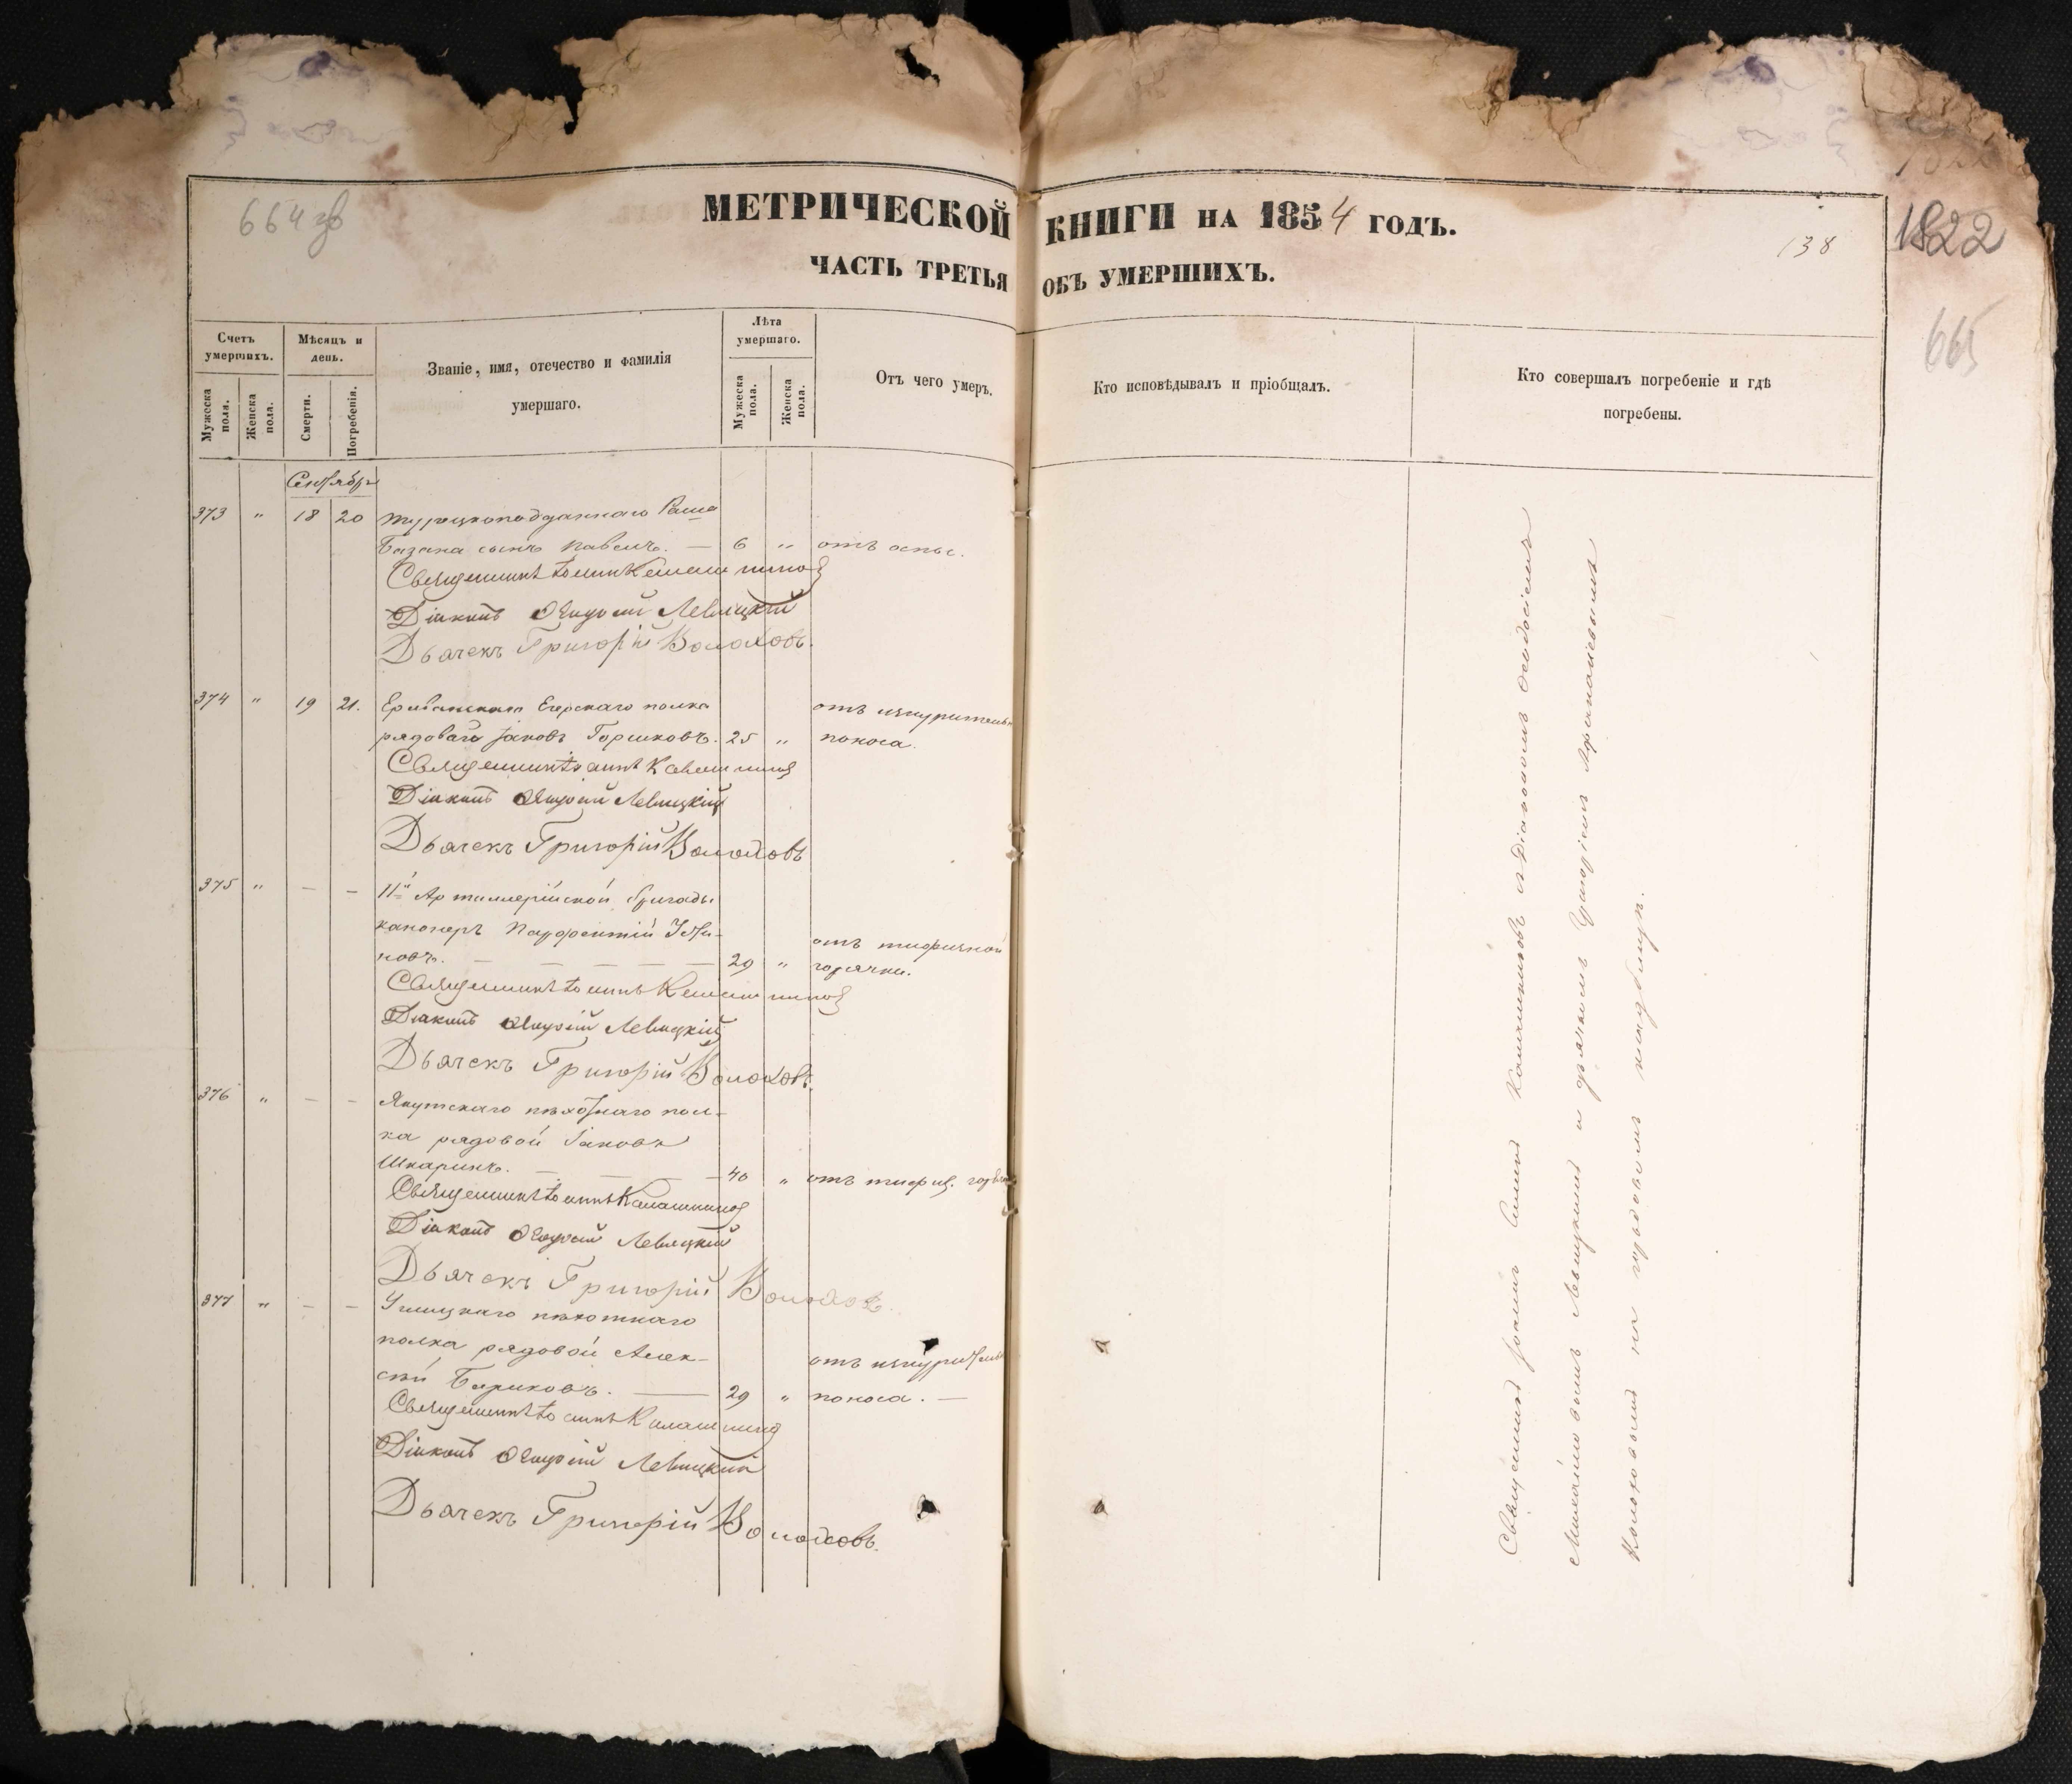 664 об
МЕТРИЧЕСКОЙ КНИГИ НА 1854 ГОДЪ.
138
1822
ЧАСТЬ ТРЕТЬЯ ОБЪ УМЕРШИХЪ.
665
Счетъ умершихъ.
Мѣсяцъ и день.
Званіе, имя, отечество и фамилія умершаго.
Лѣта умершаго.
Отъ чего умеръ.
Кто исповѣдывалъ и пріобщалъ.
Кто совершалъ погребеніе и гдѣ погребены.
Мужеска пола.
Женска пола.
Смерти.
Погребенія.
Мужеска пола.
Женска пола.
Сентябрь
373 " 18 20 турецкоподданнаго
сынъ Павелъ. — 6 " отъ оспы.
Священникъ Іоаннъ Калашников
Діаконъ Левицкій
Дьячекъ Григорій Волоховъ.
374 " 19 21. Егерскаго полка отъ изнурительн
рядоваго Іаковъ Горшковъ. 25 " поноса.
Священникъ Іоаннъ Калашников
Діаконъ Левицкій
Дьячекъ Григорій Волоховъ
375 " — — 11й Артиллерійской бригады
канонеръ Парфентій Усти- отъ тифозной
новъ. — — — — — 29 " горячки.
Священникъ Іоаннъ Калашников
Діаконъ Левицкій
Дьячекъ Григорій Волоховъ.
376 " — — Якутскаго пѣхотнаго пол-
ка рядовой Іаковъ
Шкаринъ. — — — 40 " отъ тиф.
Священникъ Іоаннъ Калашников
Діаконъ Левицкій
Дьячекъ Григорій Волохов.
377 " — — пѣхотнаго
полка рядовой Алек- отъ изнурительн
сѣй Бариковъ. — 29 " поноса. —
Священникъ Іоаннъ Калашников
Діаконъ Левицкій
Дьячекъ Григорій Волоховъ.
Священник Іоаннъ Калашниковъ съ Діакономъ Ѳеодосіемъ
Левицкимъ и дьячкомъ Григоріемъ
Волоховымъ на градскомъ кладбищѣ.